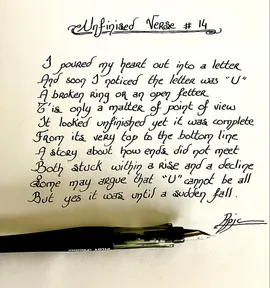 Unfinised Verse # 14
I poured my heart out into a letter
And soon I noticed the letter was "U"
A broken ring or an open fetter
T'is only a matter of point of view
It looked unfinished yet it was complete
From its very top to the bottom line
A story about how ends did not meet
Both stuck within a rise and a decline
Some may argue that "U" cannot be all
But yes it was until a sudden fall.